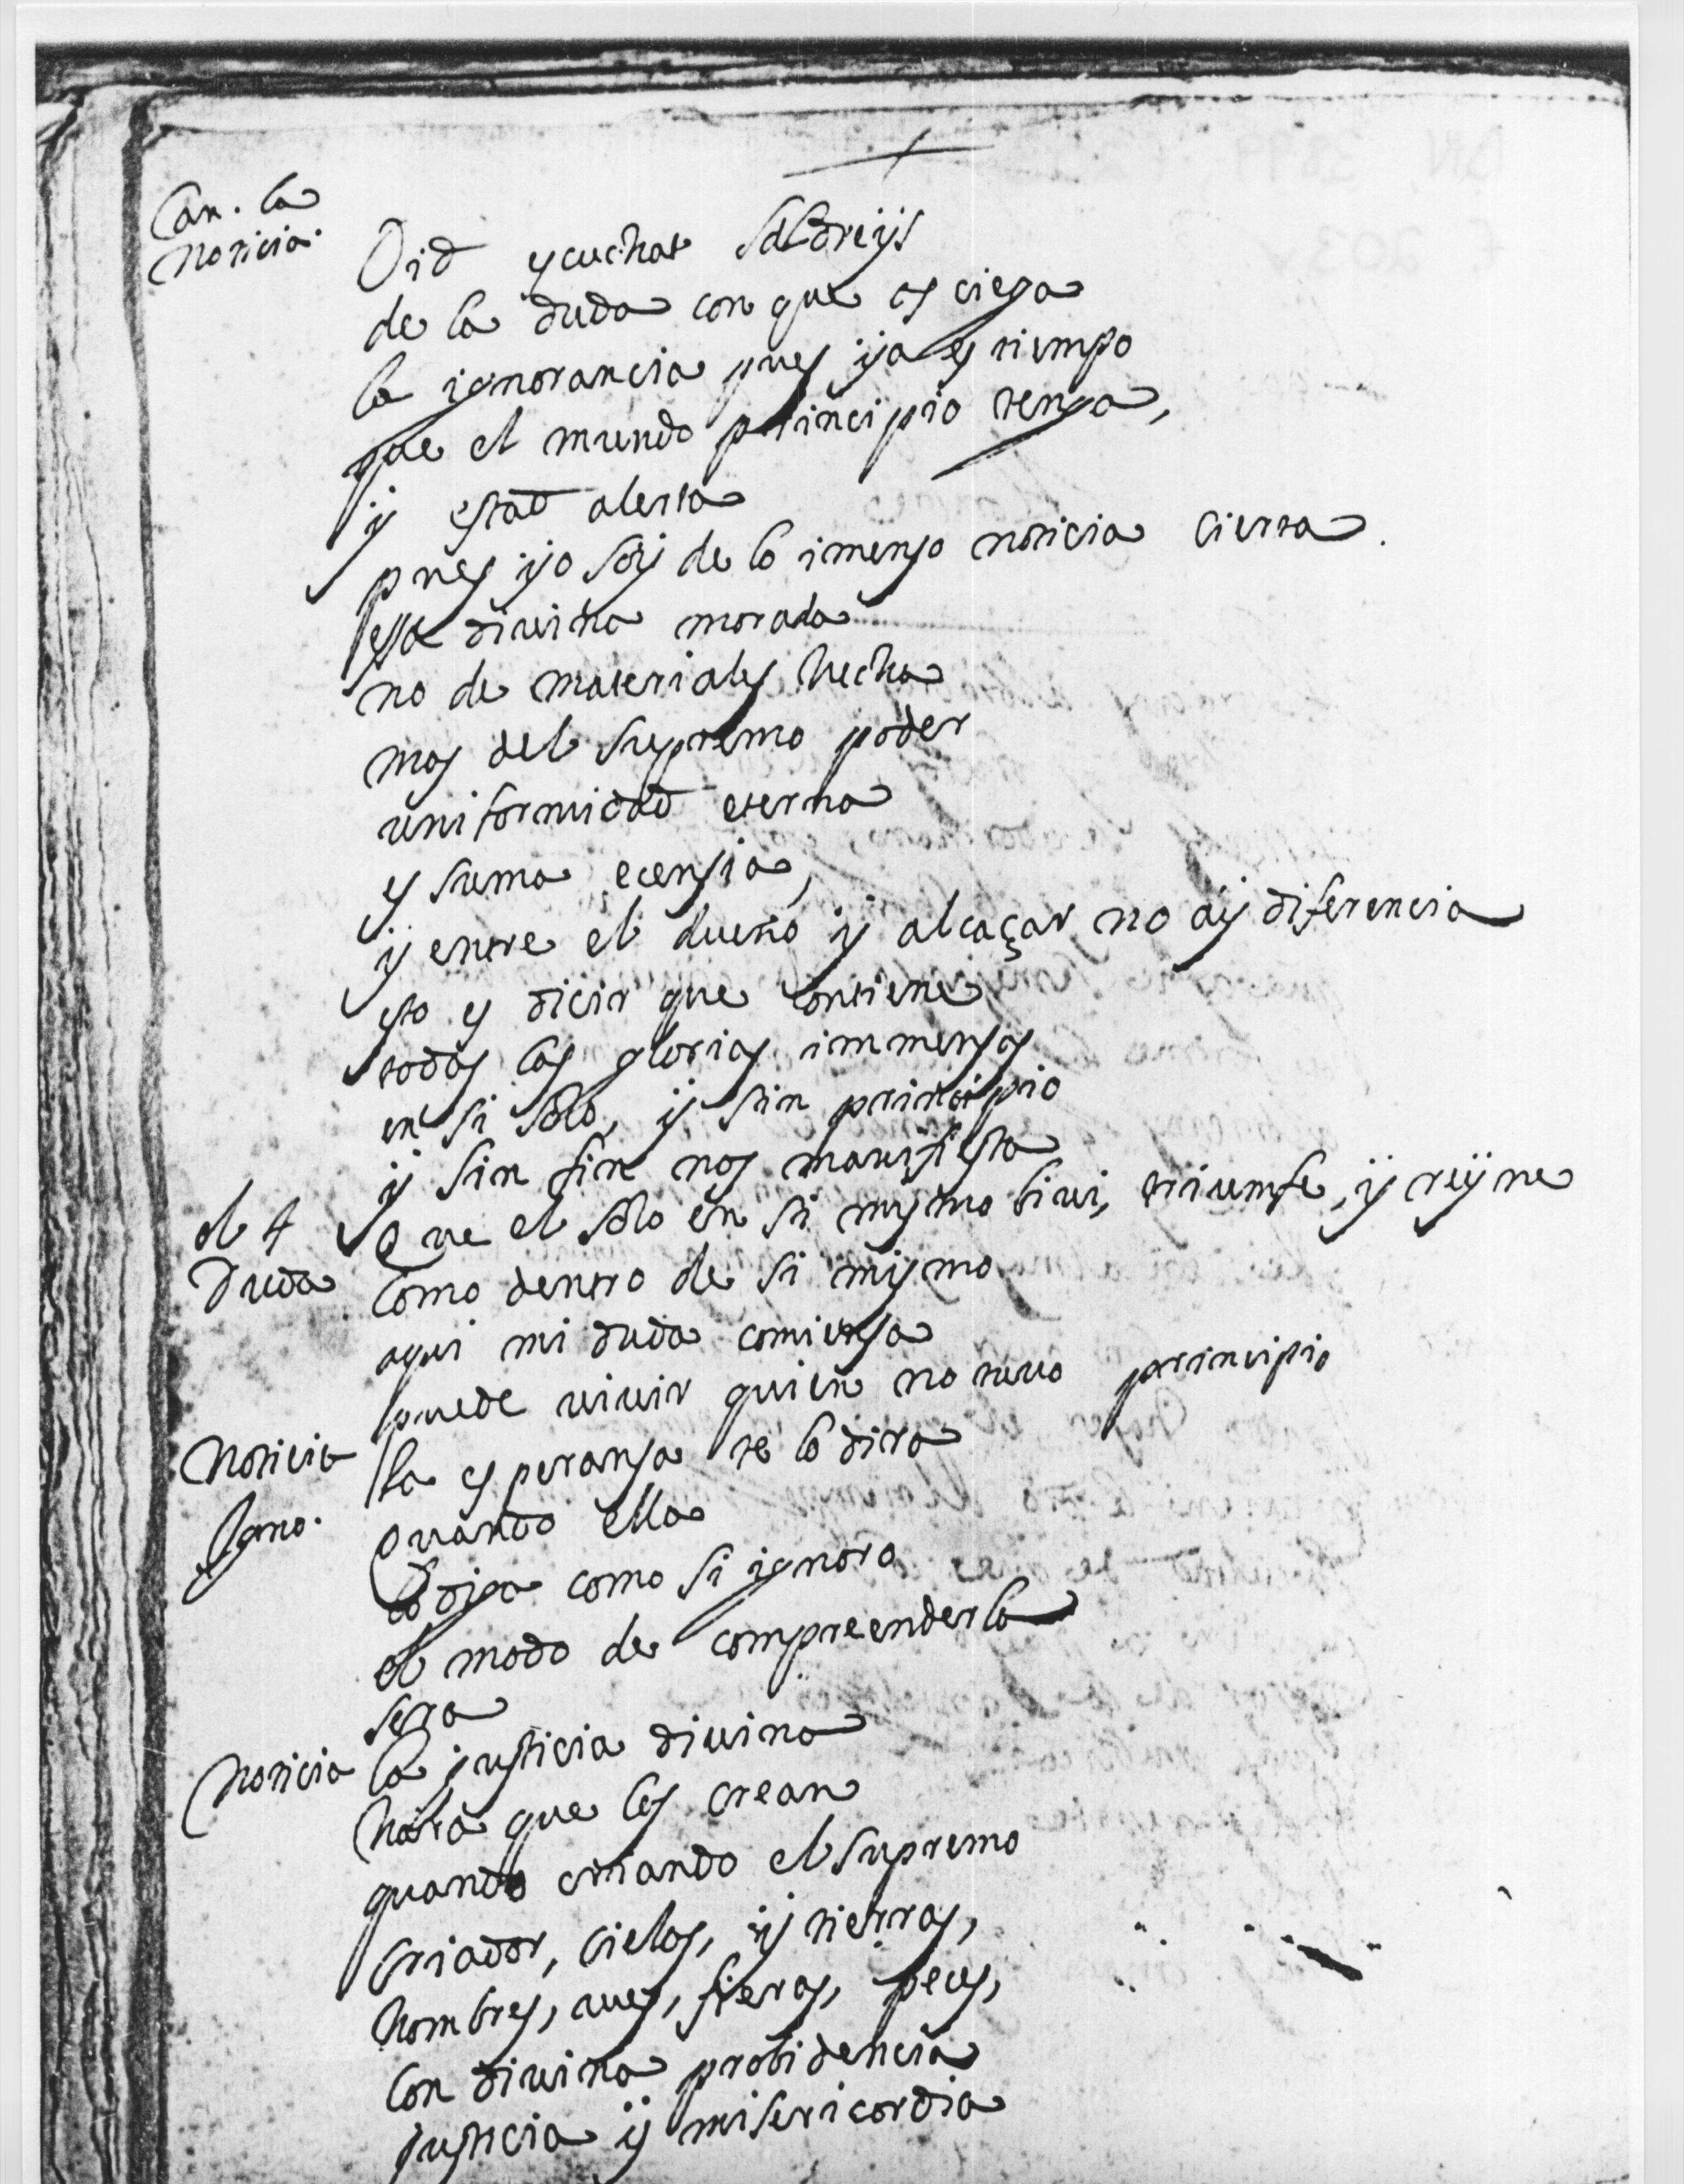 Can. la
noticia.
Oid escuchat saldreys
de la duda con que os ciega
la ignorancia pues ya es tiempo
que el mundo principio tenga,
y estad alerta
pues yo soy de lo imenso noticia cierta.
essa diuina morada
no de materiales hecha
mas del supremo poder
uniformidad eterna
es suma ecensia,
y entre el dueño y alcaçar no ay diferencia
esto es dicir que contiene
todas las glorias immensas
en si solo, y sin principio
y sin fin nos manifiesta
el 4 Que el solo en si mysmo biui, triumfe, y reyne
Duda Como dentro de si mismo
aqui mi duda comiensa
puede uiuir quien no tuuo principio
Noticia la esperansa te lo dira
Igno. Quando ella
lo diga como si ignora
el modo de compreenderla
sera
Noticia la justicia diuina
hara que los crean
quando criando el supremo
criador, cielos, y tierras,
hombres, aues, fieras, peces,
con diuina probidencia
justicia y misericordia